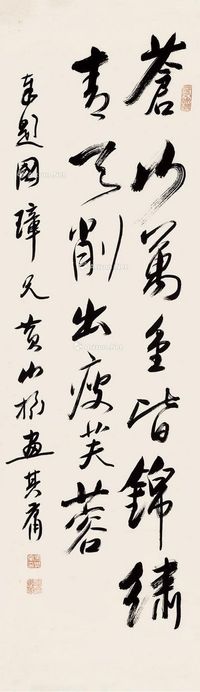 蒼山萬重皆錦繡
青天削出瘦芙蓉
奉題國璋兄黄山招畫其庸